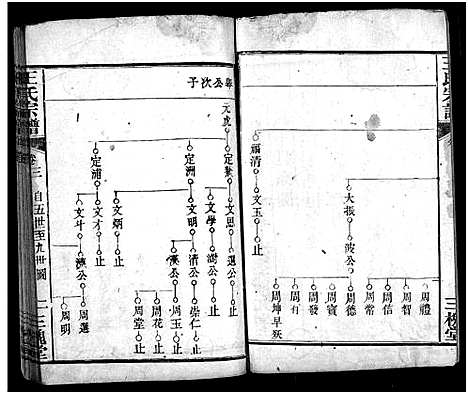 王氏宗譜
三槐堂
周禮
周智
周信
周常
大振
波公
周德
周賓
周發
周有
周坤早殀
福清
文玉
止
公次子
元虎
定
文思
止
文學
澍公
止
定淵
文明
清公
崇仁
止
漢公
周玉
止
周花
周堂
文炳
止
定浦
文才
止
文斗
周選
周明
王氏宗譜
卷三
自五世至九世圖
三槐堂